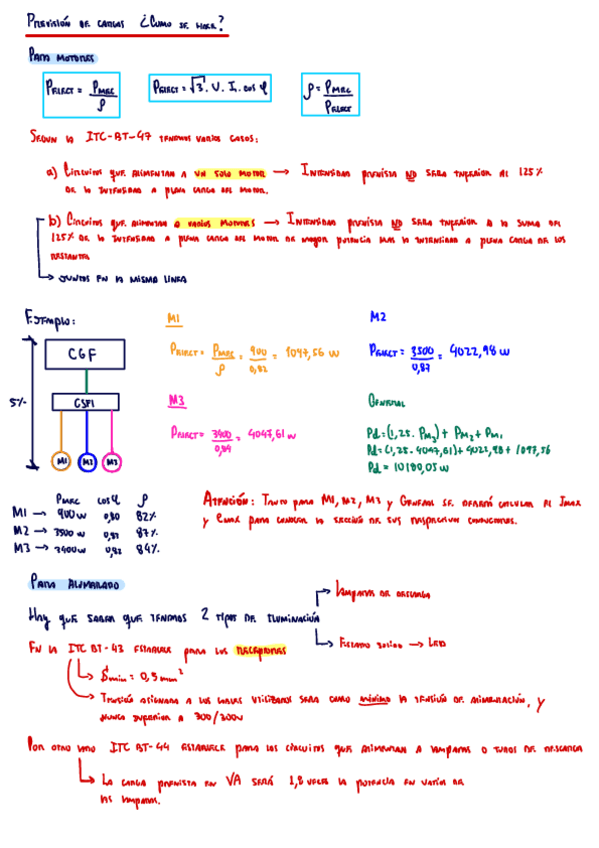 PREVISIÓN DE CARGAS ¿COMO SE HACE?
PARA MOTORES
PELECT = PMEC / ρ
PELECT = √3 . U . I . cos φ
ρ = PMEC / PELECT
SEGUN la ITC-BT-47 TENEMOS VARIOS CASOS:
a) CIRCUITOS QUE ALIMENTAN A UN SOLO MOTOR → INTENSIDAD PREVISTA NO SERA INFERIOR AL 125%
DE la INTENSIDAD A PLENA CARGA DEL MOTOR.
b) CIRCUITOS QUE ALIMENTAN A VARIOS MOTORES → INTENSIDAD PREVISTA NO SERA INFERIOR A la SUMA DEL
125% DE la INTENSIDAD A PLENA CARGA DEL MOTOR DE MAYOR POTENCIA MAS la INTENSIDAD A PLENA CARGA DE LOS
RESTANTES
→ JUNTOS EN LA MISMA LINEA
EJEMPLO:
CGF
CSF1
5%
M1 M2 M3
M1
PELECT = PMEC / ρ = 900 / 0,82 = 1097,56 W
M2
PELECT = 3500 / 0,87 = 4022,98 W
M3
PELECT = 3400 / 0,84 = 4047,61 W
GENERAL
Pd = (1,25 . PM3) + PM2 + PM1
Pd = (1,25 . 4047,61) + 4022,98 + 1097,56
Pd = 10180,05 W
PMEC cos φ ρ
M1 → 900 W 0,80 82%
M2 → 3500 W 0,81 87%
M3 → 3400 W 0,82 84%
ATENCIÓN: TANTO PARA M1, M2, M3 y GENERAL SE DEBERÁ CALCULAR EL IMAX
y EMAX PARA CONOCER LA SECCIÓN DE SUS RESPECTIVOS CONDUCTORES.
PARA ALUMBRADO
HAY QUE SABER QUE TENEMOS 2 TIPOS DE ILUMINACIÓN
→ LAMPARAS DE DESCARGA
→ ESTADO SOLIDO → LED
EN la ITC BT-43 ESTABLECE PARA LOS RECEPTORES
→ Smin = 0,5 mm²
→ TENSIÓN ASIGNADA A LOS CABLES UTILIZADOS SERA COMO MÍNIMO la TENSIÓN DE ALIMENTACIÓN, y
NUNCA INFERIOR A 300/300V
POR OTRO LADO ITC BT-44 ESTABLECE PARA LOS CIRCUITOS QUE ALIMENTAN A LAMPARAS O TUBOS DE DESCARGA
→ LA CARGA PREVISTA EN VA SERÁ 1,8 VECES LA POTENCIA EN VATIOS DE
LAS LAMPARAS.